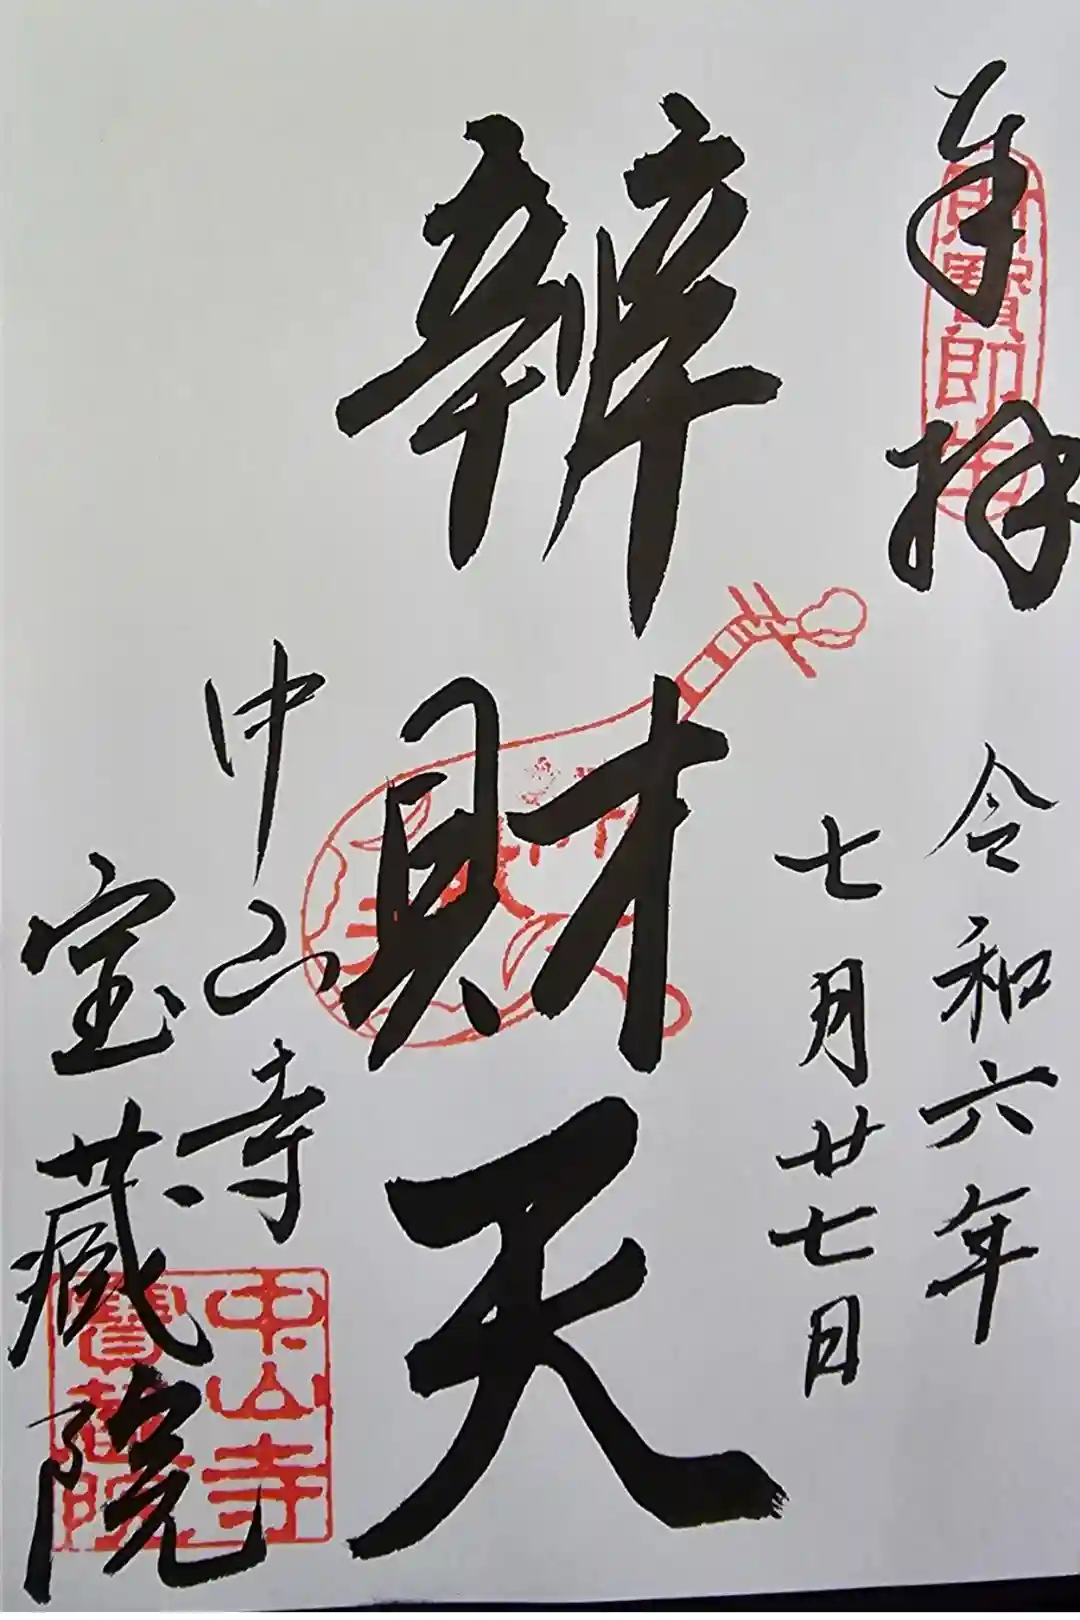 奉拝
財寳即生
令和六年
七月廿七日
辨財天
中山寺
宝蔵院
中山寺
寶蔵院